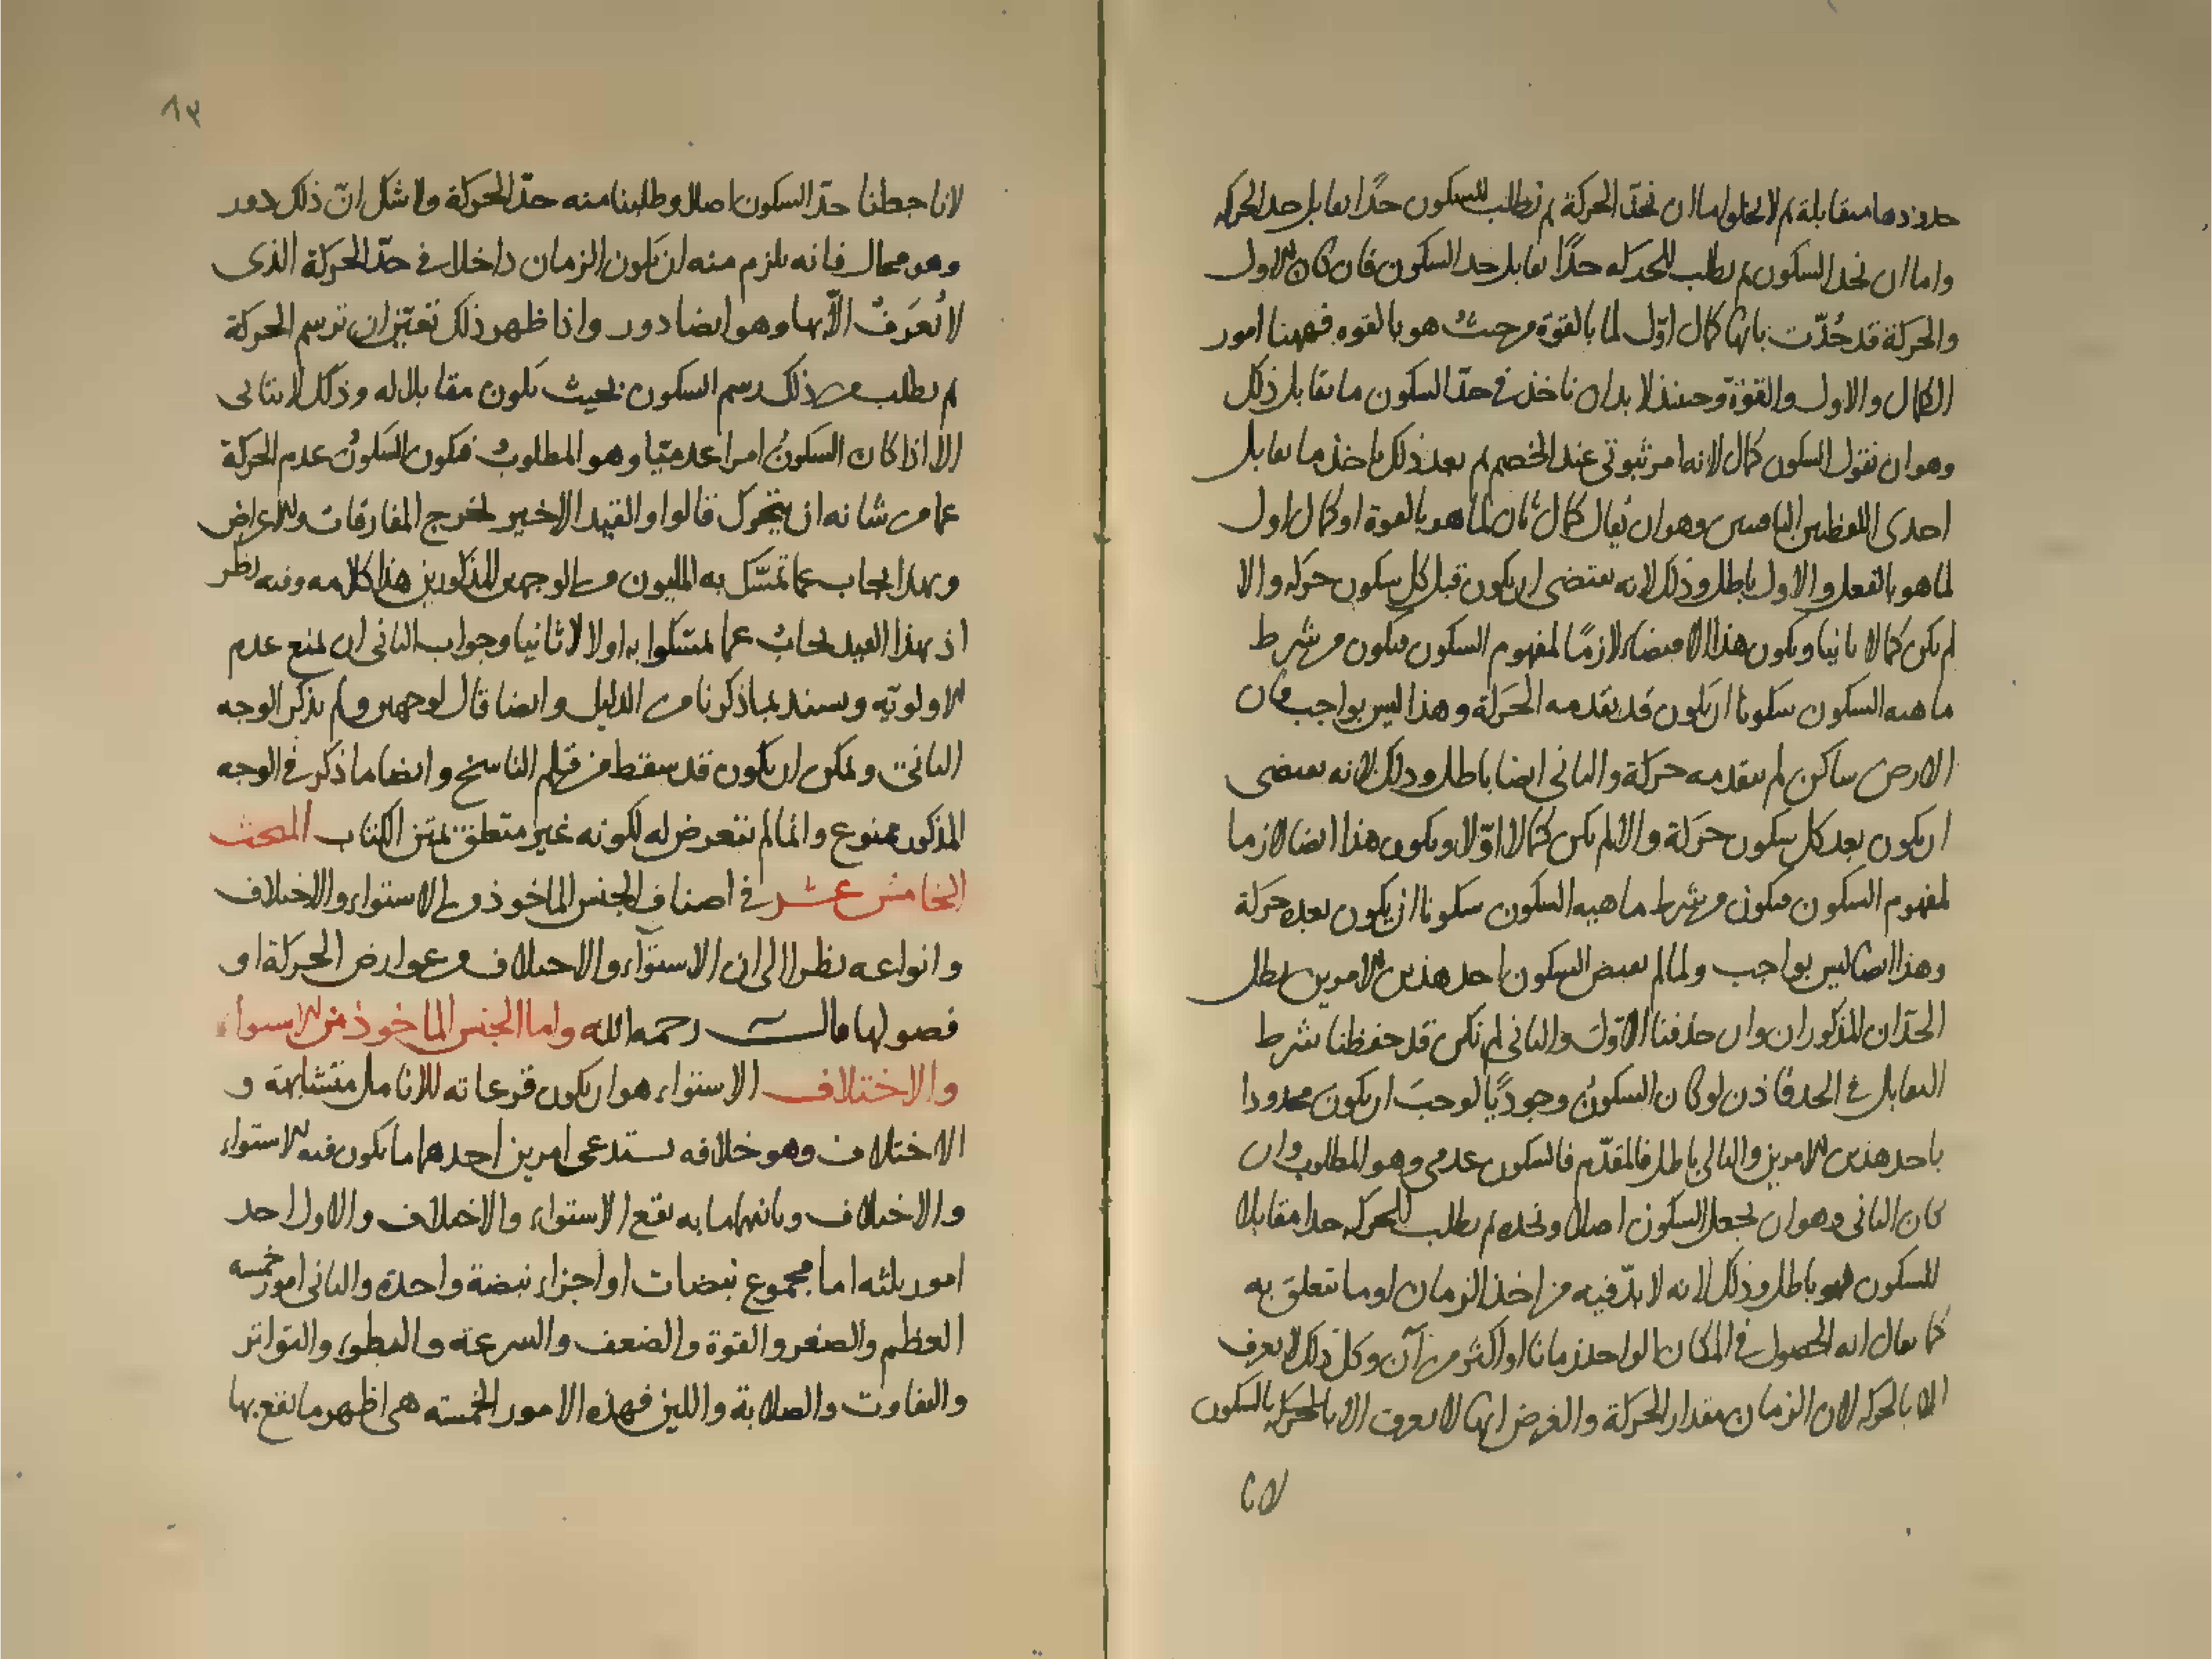 حدودها متقابلة ثم لا يخلو اما ان نحدّ الحركة ثم نطلب للسكون حدًا يقابل حد الحركة
واما ان نحد السكون ثم نطلب للحركة حدًا يقابل حد السكون فان كان الاول
والحركة قد حُدّت بانها كمال اوّل لما بالقوة من حيث هو بالقوه فههنا امور
الكمال والاول والقوّة وحينئذ لا بد ان ناخذ في حدّ السكون ما يقابل ذلك
وهو ان نقول السكون كمال لانه امر ثبوتي عند الخصم ثم بعد ذلك ناخذ ما يقابل
احدى اللفظين الباقيتين وهو ان يقال كمال ثان لما هو بالقوة او كمال اول
لما هو بالفعل والاول باطل وذلك لانه يقتضى ان يكون قبل كل سكون حركة والا
لم يكن كمالا ثانيا ويكون هذا الاقتضاء لازمًا لمفهوم السكون فيكون من شرط
ماهية السكون سكونا ان يكون قد تقدمه الحَركة وهذا ليس بواجب فان
الارض ساكن لم يتقدمه حركة والثاني ايضا باطل وذلك لانه يقتضى
ان يكون بعد كل سكون حَركة والا لم يكن كمالا اوّلا ويكون هذا ايضا لازما
لمفهوم السكون فيكون من شرط ماهية السكون سكونا ان يكون بعده حركة
وهذا ايضا ليس بواجب ولما لم يقتض السكون احد هذين الامرين بطل
الحدّان المذكوران وان حذفنا الاوّل والثاني لم نكن قد حفظنا شرط
التقابل في الحد فاذن لو كان السكونُ وجوديًا لوجبَ ان يكونَ محدودا
باحد هذين الامرين والتالي باطل فالمقدّم فالسكون عدمي وهو المطلوب وان
كان الثاني وهو ان نجعل السكون اصلا ونحده ثم نطلب للحركة حدا مقابلا
للسكون فهو باطل وذلك لانه لا بدّ فيه من اخذ الزمان او ما تتعلق به
كما يقال انه الحصول في المكان الواحد زمانا او اكثر من آن وكل ذلك لا يعرف
الا بالحركة لان الزمان مقدار الحركة والغرض انها لا تعرف الا بالحركة بالسكون
لانا
٨٣
لانا جعلنا حدّ السكون اصلا وطلبنا منه حدّ الحركة ولا شك ان ذلك دور
وهو محال فانه يلزم منه ان يكون الزمان داخلا في حدّ الحركة الذى
لا يُعَرفُ الّا بها وهو ايضا دور واذا ظهر ذلك تعيّن ان نرسم الحركة
ثم نطلب من ذلك رسم السكون بحيث يكون مقابلا له وذلك لا يتاتى
الا اذا كان السكونُ امرا عدميّا وهو المطلوبُ فيكون السكونُ عدم الحركة
عما من شانه ان يتحرك قالوا والقيد الاخير لخرج المفارقات والاعراض
وبهذا يجاب عما تمسّك به المليون من الوجهين المذكورين هذا كلامه وفيه نظر
اذ بهذا القيد يجابُ عما تمسّكوا به اولا لا ثانيا وجواب الثاني ان نمنع عدم
الاولويّه ويسند بما ذكرنا من الدليل وايضا قال لوجهين ولم يذكر الوجه
الثاني ويمكن ان يكون قد سقط من قلم الناسخ وايضا ما ذكر في الوجه
المذكور ممنوع وانما لم نتعرض له لكونه غير متعلق بمتن الكتاب المبحث
الخامس عشر في اصناف الجنس الماخوذ من الاستواء والاختلاف
وانواعه نظرا الى ان الاستواء والاختلاف من عوارض الحركة او
فصولها قالـــ رحمه الله واما الجنس الماخوذ من الاستواء
والاختلاف الاستواء هو ان يكون قرعاته للانامل متشابهة و
الاختلاف وهو خلافه يستدعى امرين احدهما ما يكون فيه الاستواء
والاختلاف وثانيهما ما به يقع الاستواء والاختلاف والاول احد
امور ثلثه اما مجموع نبضات او اجزاء نبضة واحدة والثاني امور خمسه
العظم والصغر والقوة والضعف والسرعة والبطوء والتواتر
والتفاوت والصلابة واللين فهذه الامور الخمسته هى اظهر ما تقع بها